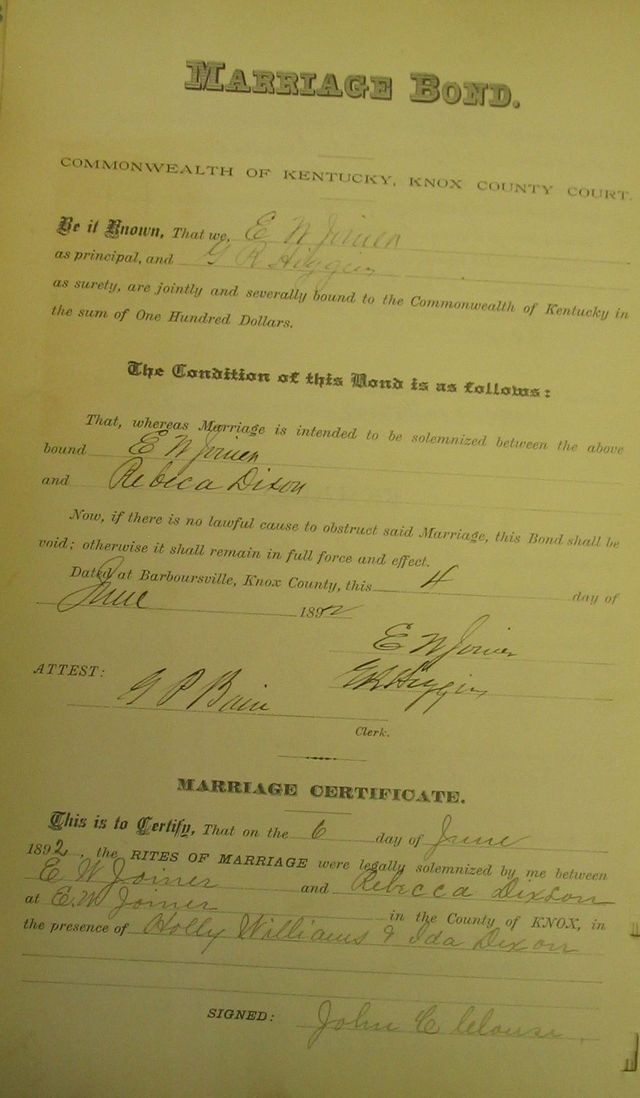 MARRIAGE BOND.
COMMONWEALTH OF KENTUCKY, KNOX COUNTY COURT.
Be it Known, That we, E W Joiner
as principal, and G R Higgin
as surety, are jointly and severally bound to the Commonwealth of Kentucky in
the sum of One Hundred Dollars.
The Condition of this Bond is as follows:
That, whereas Marriage is intended to be solemnized between the above
bound E W Joiner
and Rebeca Dixon
Now, if there is no lawful cause to obstruct said Marriage, this Bond shall be
void; otherwise it shall remain in full force and effect.
Dated at Barboursville, Knox County, this 4 day of
June 1892
E W Joiner
ATTEST: G R Higgin
G P Bain
Clerk.
MARRIAGE CERTIFICATE.
This is to Certify, That on the 6 day of June
1892, the RITES OF MARRIAGE were legally solemnized by me between
E W Joiner and Rebecca Dixson
at E.W Joiner in the County of KNOX, in
the presence of Holly Williams & Ida Dixon
SIGNED: John C Clouse